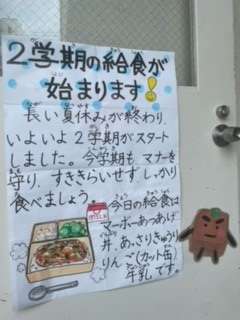 2学期の給食が
始まります!
長い夏休みが終わり、
いよいよ2学期がスタート
しました。今学期も マナーを
守り、すききらいせず しっかり
食べましょう。
今日の給食は
マーボーあつあげ
丼、あっさりきゅうり
りんご(カット缶)
牛乳です。